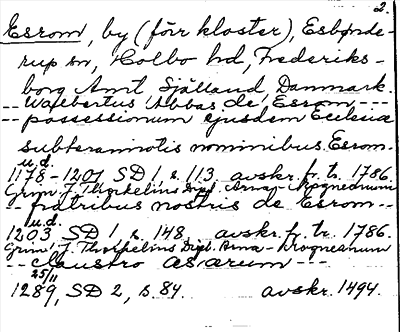 2.
Esrom, by (förr kloster), Esbønde-
rup sn, Holbo hd, Frederiks-
borg Amt Själland, Danmark.
-- Walbertus Abbas de Esrom ---
-- possessionum ejusdem Ecclesiæ
subterannotis nominibus. Esrom.
u.d.
1178-1201 SD 1, s. 113. avskr. fr. tr. 1786.
Grim J. Thorkelins Dipl. Arna-Magneanum
-- fratribus nostris de Esrom --
u.d.
1203 SD 1, s. 148, avskr. fr. tr. 1786.
Grim J. Thorkelins Dipl. Arna-Magneanum
-- claustro asarum ---
25/11
1289, SD 2, s. 84. avskr. 1494.